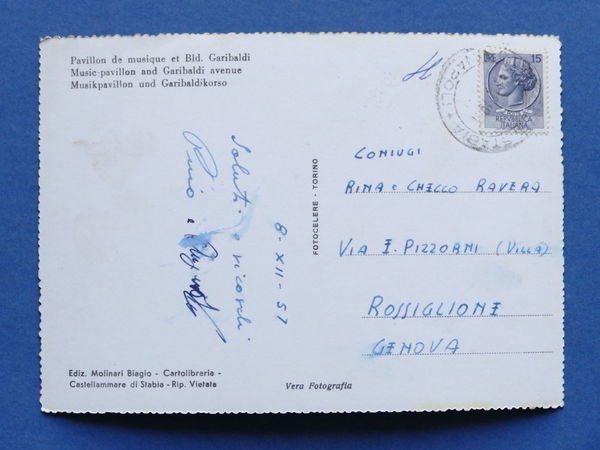 Pavillon de musique et Bld. Garibaldi
Music-pavillon and Garibaldi avenue
Musikpavillon und Garibaldikorso
Saluti e ricordi
8-XII-57
FOTOCELERE - TORINO
LIRE 15
POSTE
REPVBBLICA
ITALIANA
CONIUGI
RINA e CHECCO RAVERA
VIA I. PIZZORNI (VILLA)
ROSSIGLIONE
GENOVA
Ediz. Molinari Biagio - Cartolibreria -
Castellammare di Stabia - Rip. Vietata
Vera Fotografia